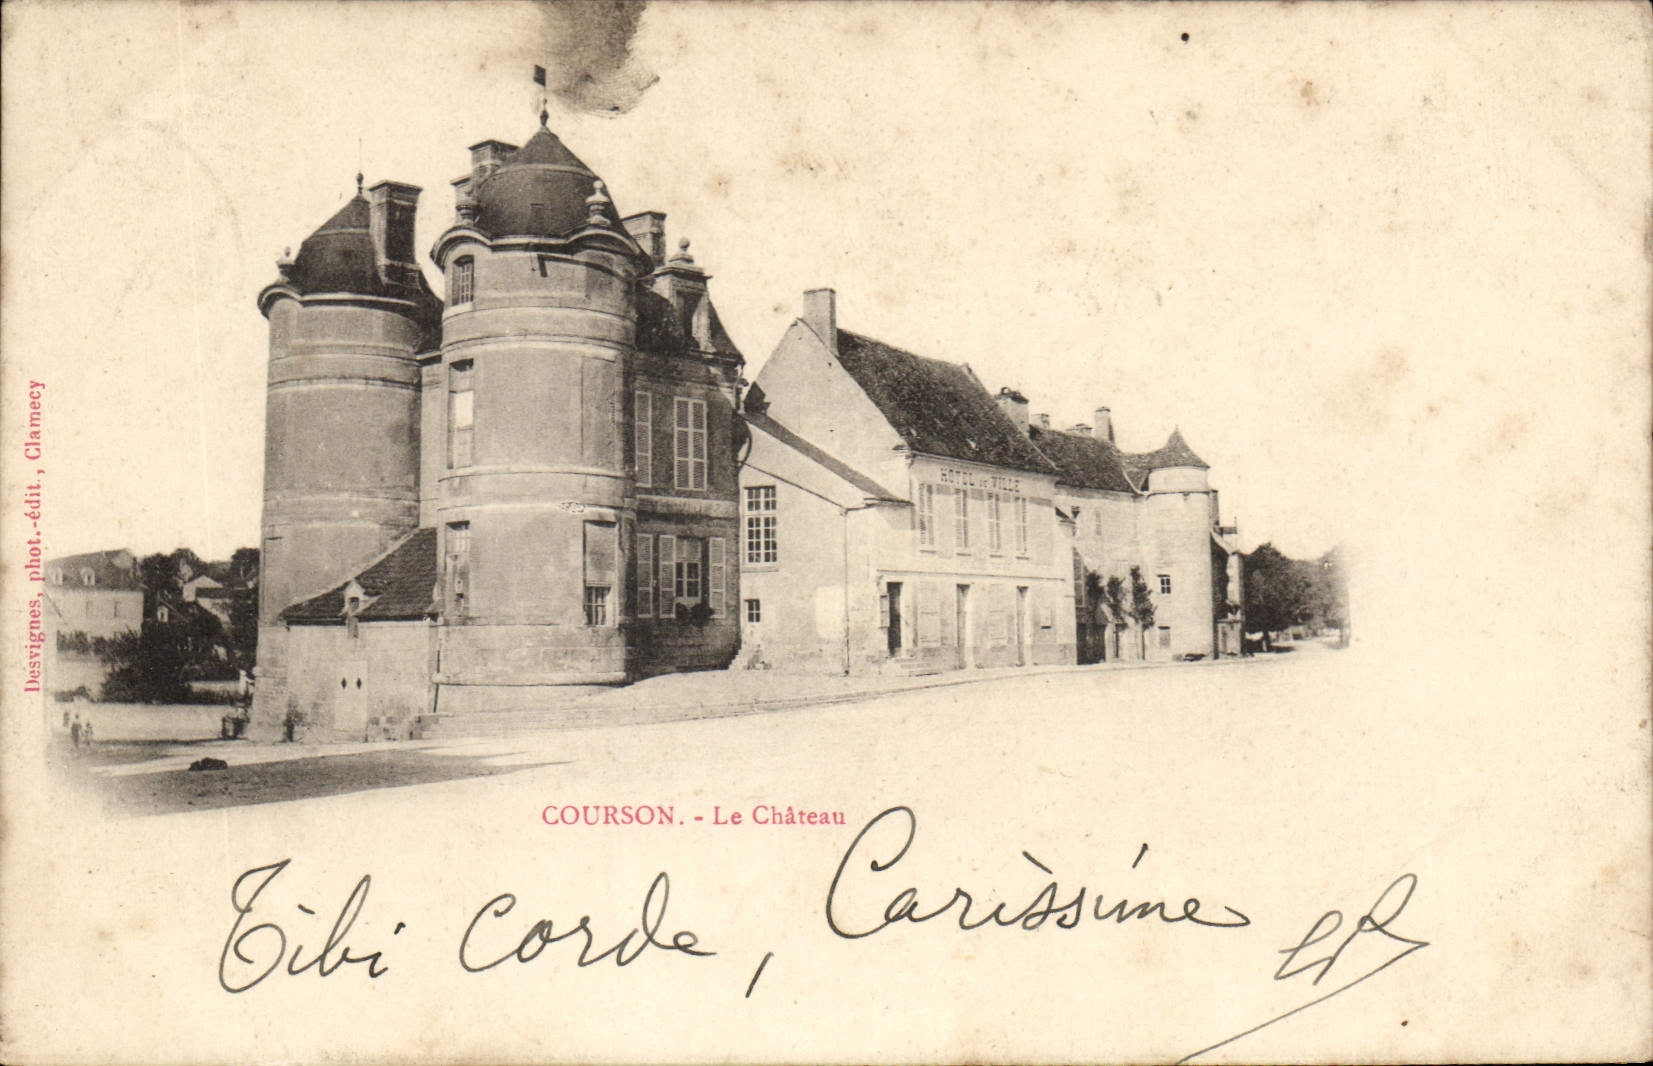 HÔTEL DE VILLE
Desvignes, phot.-édit., Clamecy
COURSON. - Le Château
Tibi corde, Carissime